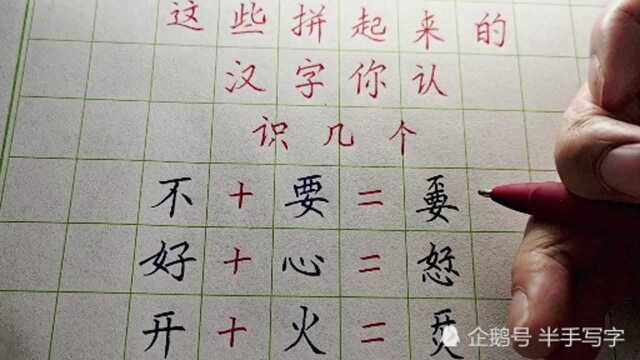 这些拼起来的
汉字你认
识几个
不+要=嫑
好+心=恏
开+火=烎
企鹅号 半手写字